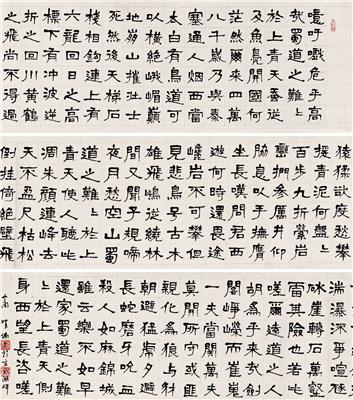 噫吁戲危乎高
哉蜀道之難〻
於上青天蠶叢
及魚鳧開國何
茫然爾來四萬
八千歲乃與秦
塞通人煙西當
太白有鳥道可
以橫絕峨嵋巔
地崩山摧壯士
死然後天梯石
棧相鉤連上有
六龍回日之高
標下有衝波逆
折之回川黃鶴
之飛尚不得過
猨猱欲度愁攀
援青泥何盤〻
百步九折縈岩
巒捫參歷井仰
脅息以手撫膺
坐長嘆問君西
遊何時還畏途
巉岩不可攀但
見悲鳥號古木
雄飛雌從繞林
間又聞子規啼
夜月愁空山蜀
道之難〻於上
青天使人聽此
凋朱顏連峰去
天不盈尺枯松
倒挂倚絕壁飛
湍瀑流爭喧豗
砯崖轉石萬壑
雷其險也若此
嗟爾遠道之人
胡為乎來哉劍
閣崢嶸而崔嵬
一夫當關萬夫
莫開所守或匪
親化為狼與豺
朝避猛虎夕避
長蛇磨牙吮血
殺人如麻錦城
雖云樂不如早
還家蜀道之難
〻於上青天側
身西望長咨嗟